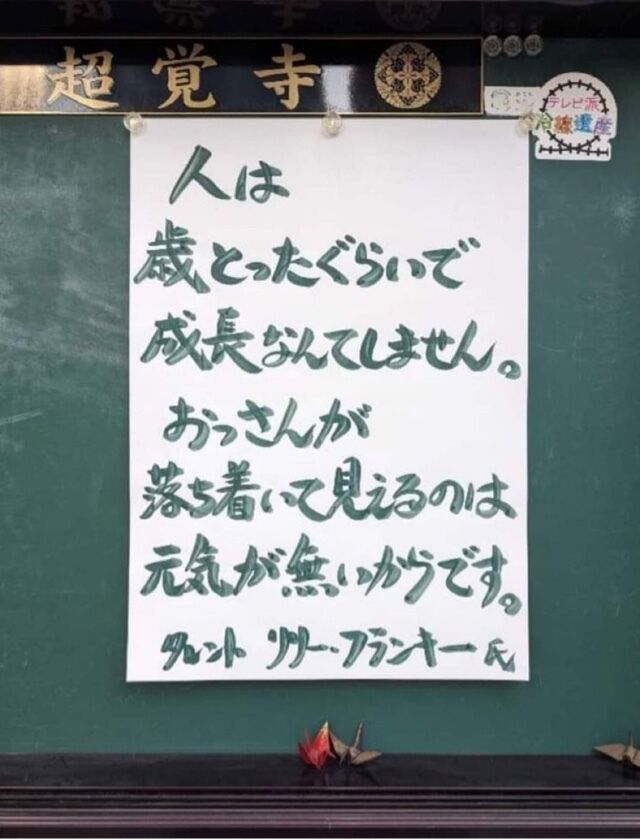 超覚寺
テレビ派
人は
歳とったぐらいで
成長なんてしません。
おっさんが
落ち着いて見えるのは
元気が無いからです。
タレント リリー・フランキー氏